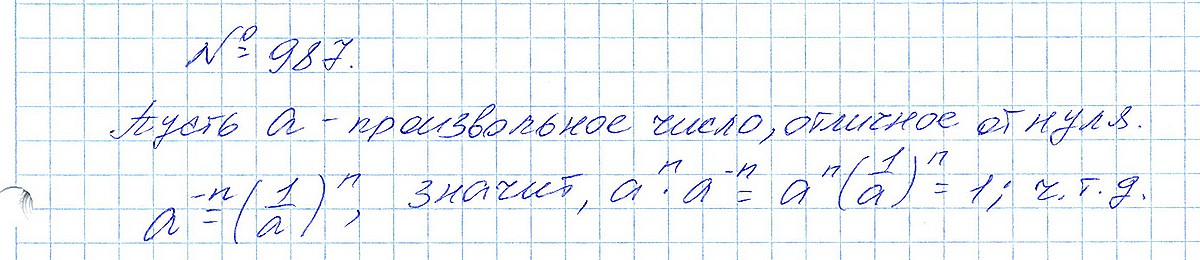 № 987.
Пусть a – произвольное число, отличное от нуля.
a⁻ⁿ = (1/a)ⁿ, значит, aⁿ · a⁻ⁿ = aⁿ(1/a)ⁿ = 1; ч.т.д.